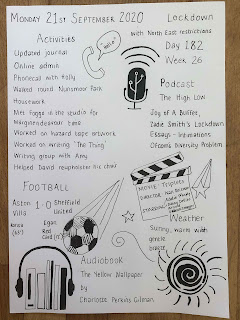 MONDAY 21st SEPTEMBER 2020
Lockdown
with North East restrictions
Day 182
Week 26
Activities
Updated journal
Online admin
Phonecall with Kelly
Walked round Nunsmoor Park
Housework
Met Foggs in the studio for
Worked on hazard tape artwork
Worked on writing "The Thing"
Writing group with Amy
Helped David reupholster his chair
hello?
Podcast
The High Low
Joy of A Buffet,
Jade Smith's Lockdown
Essays - Intimations
Ofcoms Diversity Problem
FOOTBALL
Aston 1-0 Sheffield
Villa United
Konsa
Egan
Red Card
MOVIE
Director
STARRING
Weather
Sunny, warm with
gentle
breeze
Audiobook
The Yellow Wallpaper
by
Charlotte Perkins Gilman